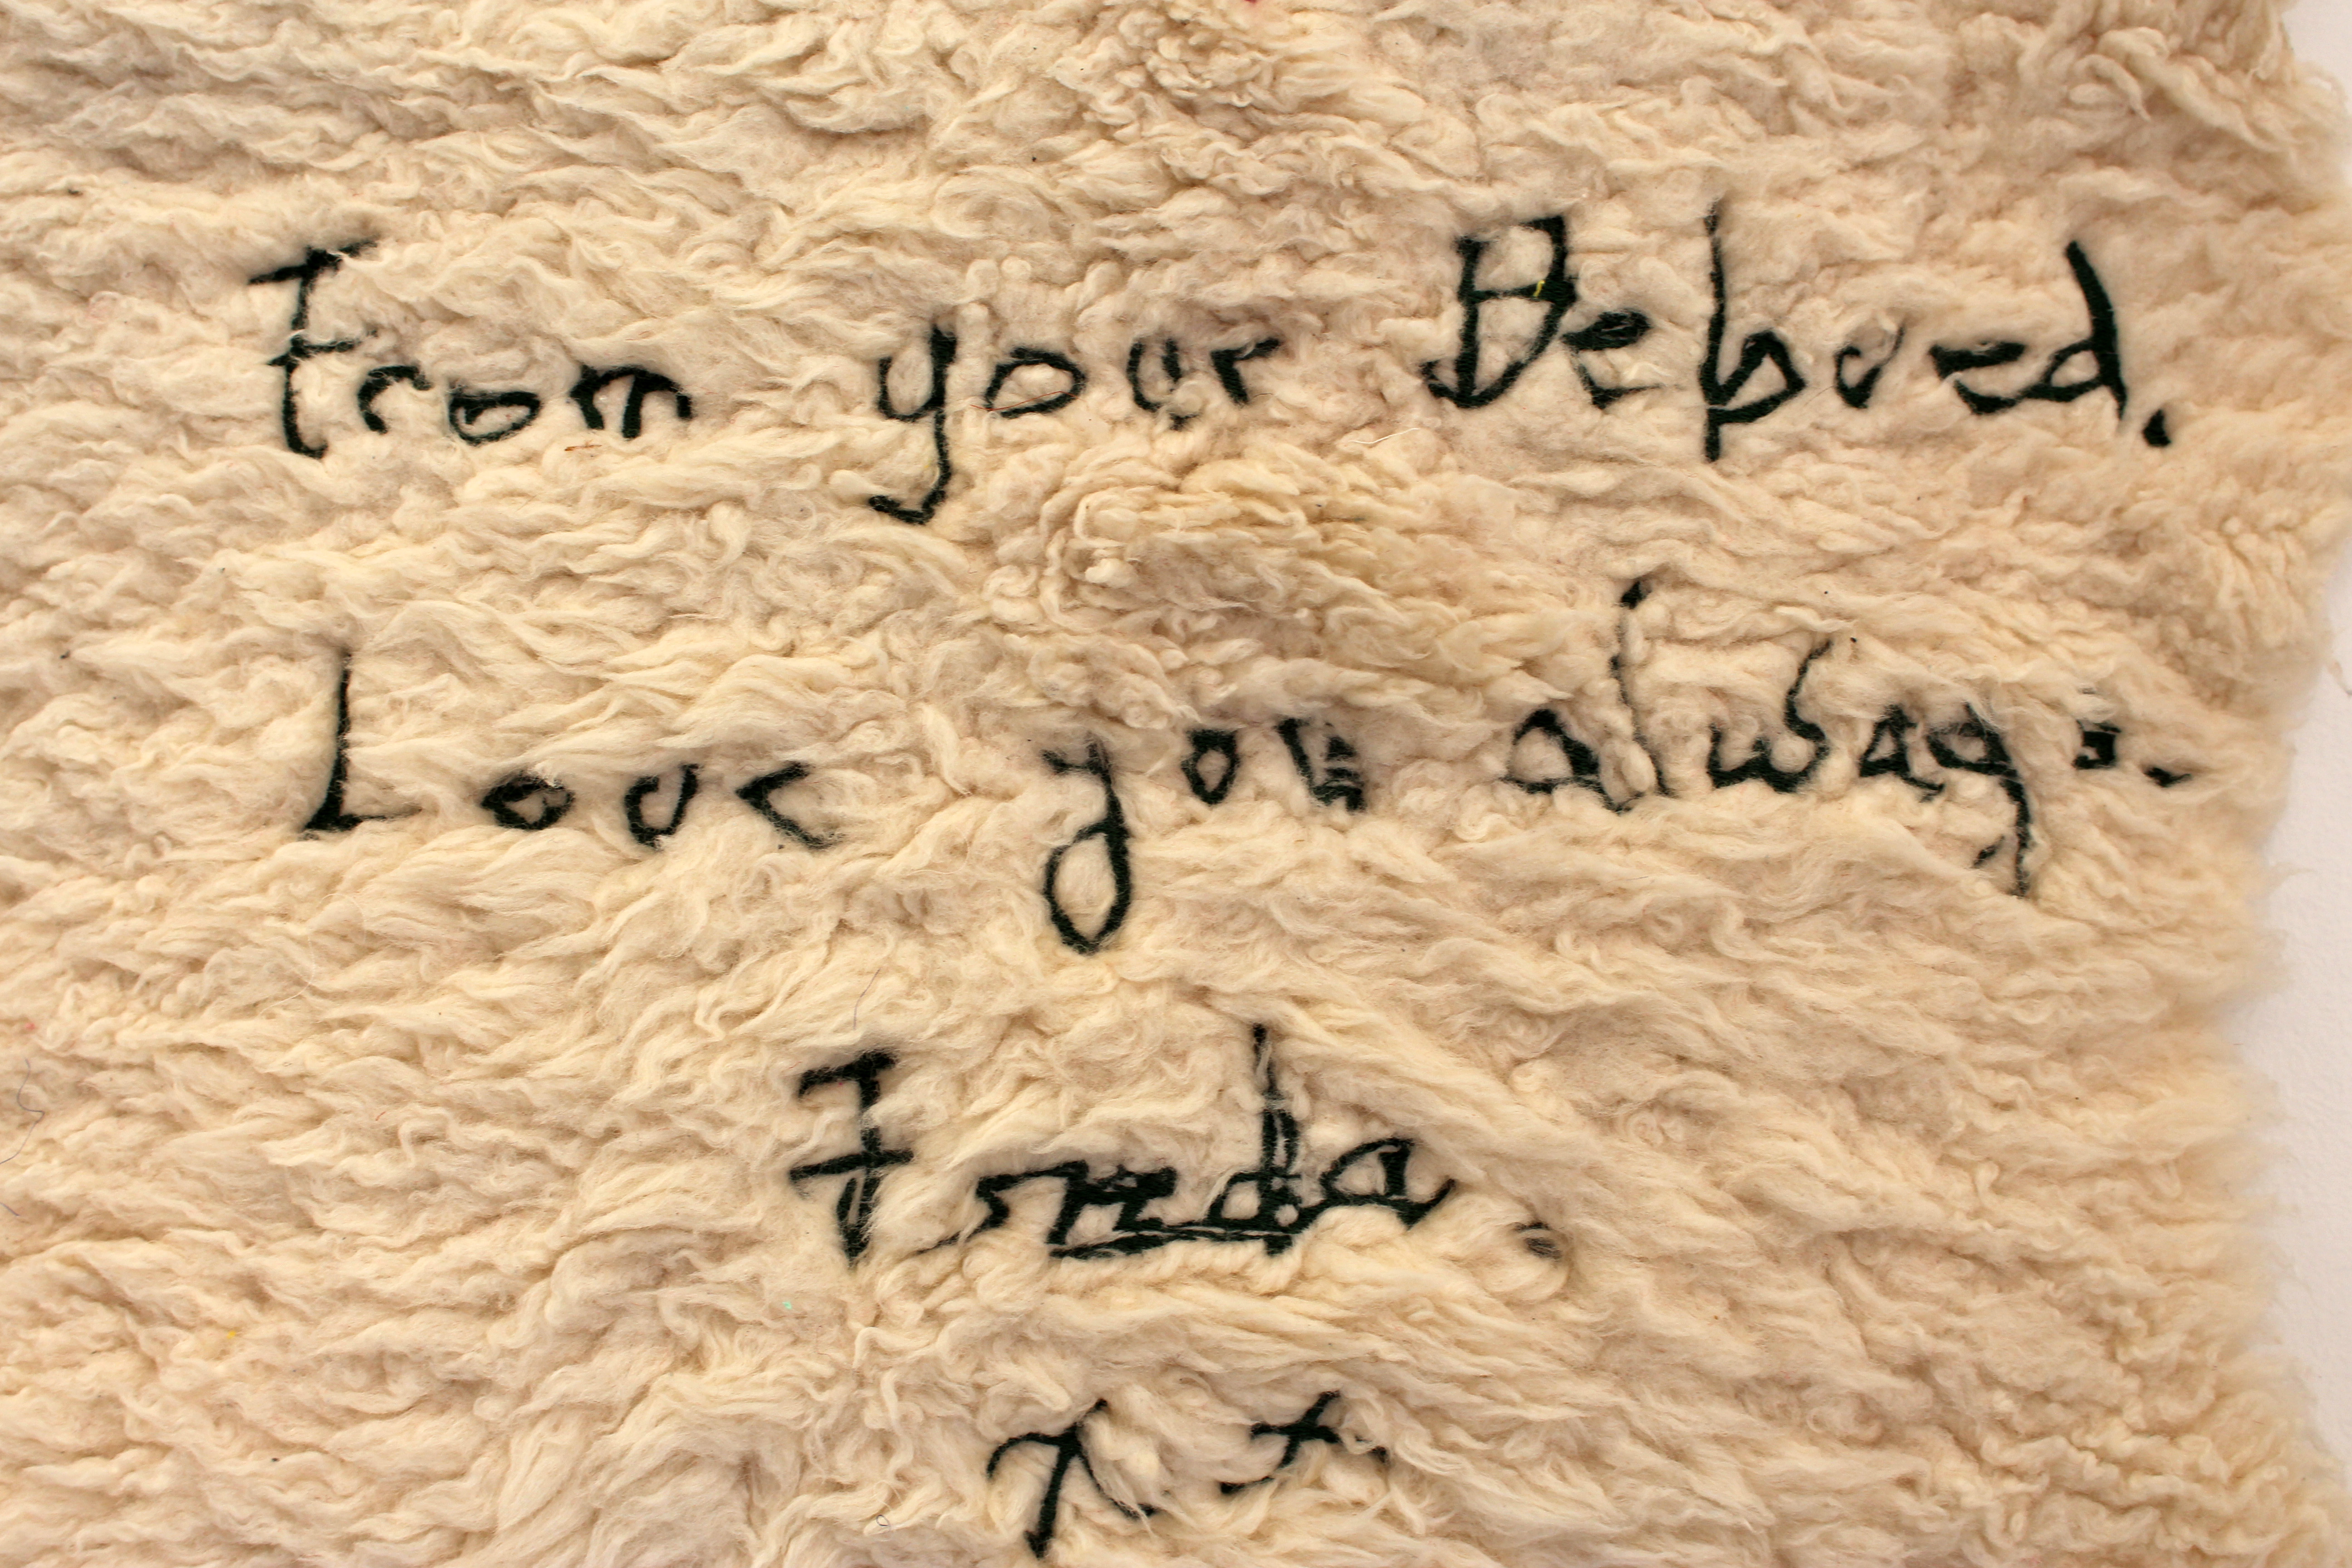 From your Beloved.
Love you always.
Freda
xx